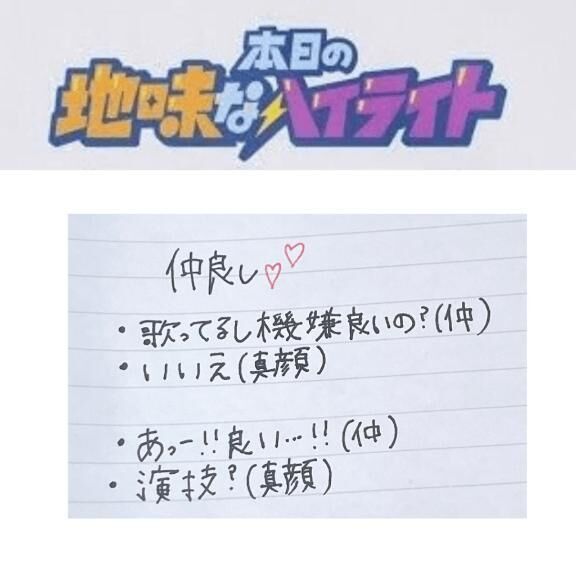 本日の
地味なハイライト
仲良し♡♡
・歌ってるし機嫌良いの?(仲)
・いいえ(真顔)
・あっー!!良い…!!(仲)
・演技?(真顔)